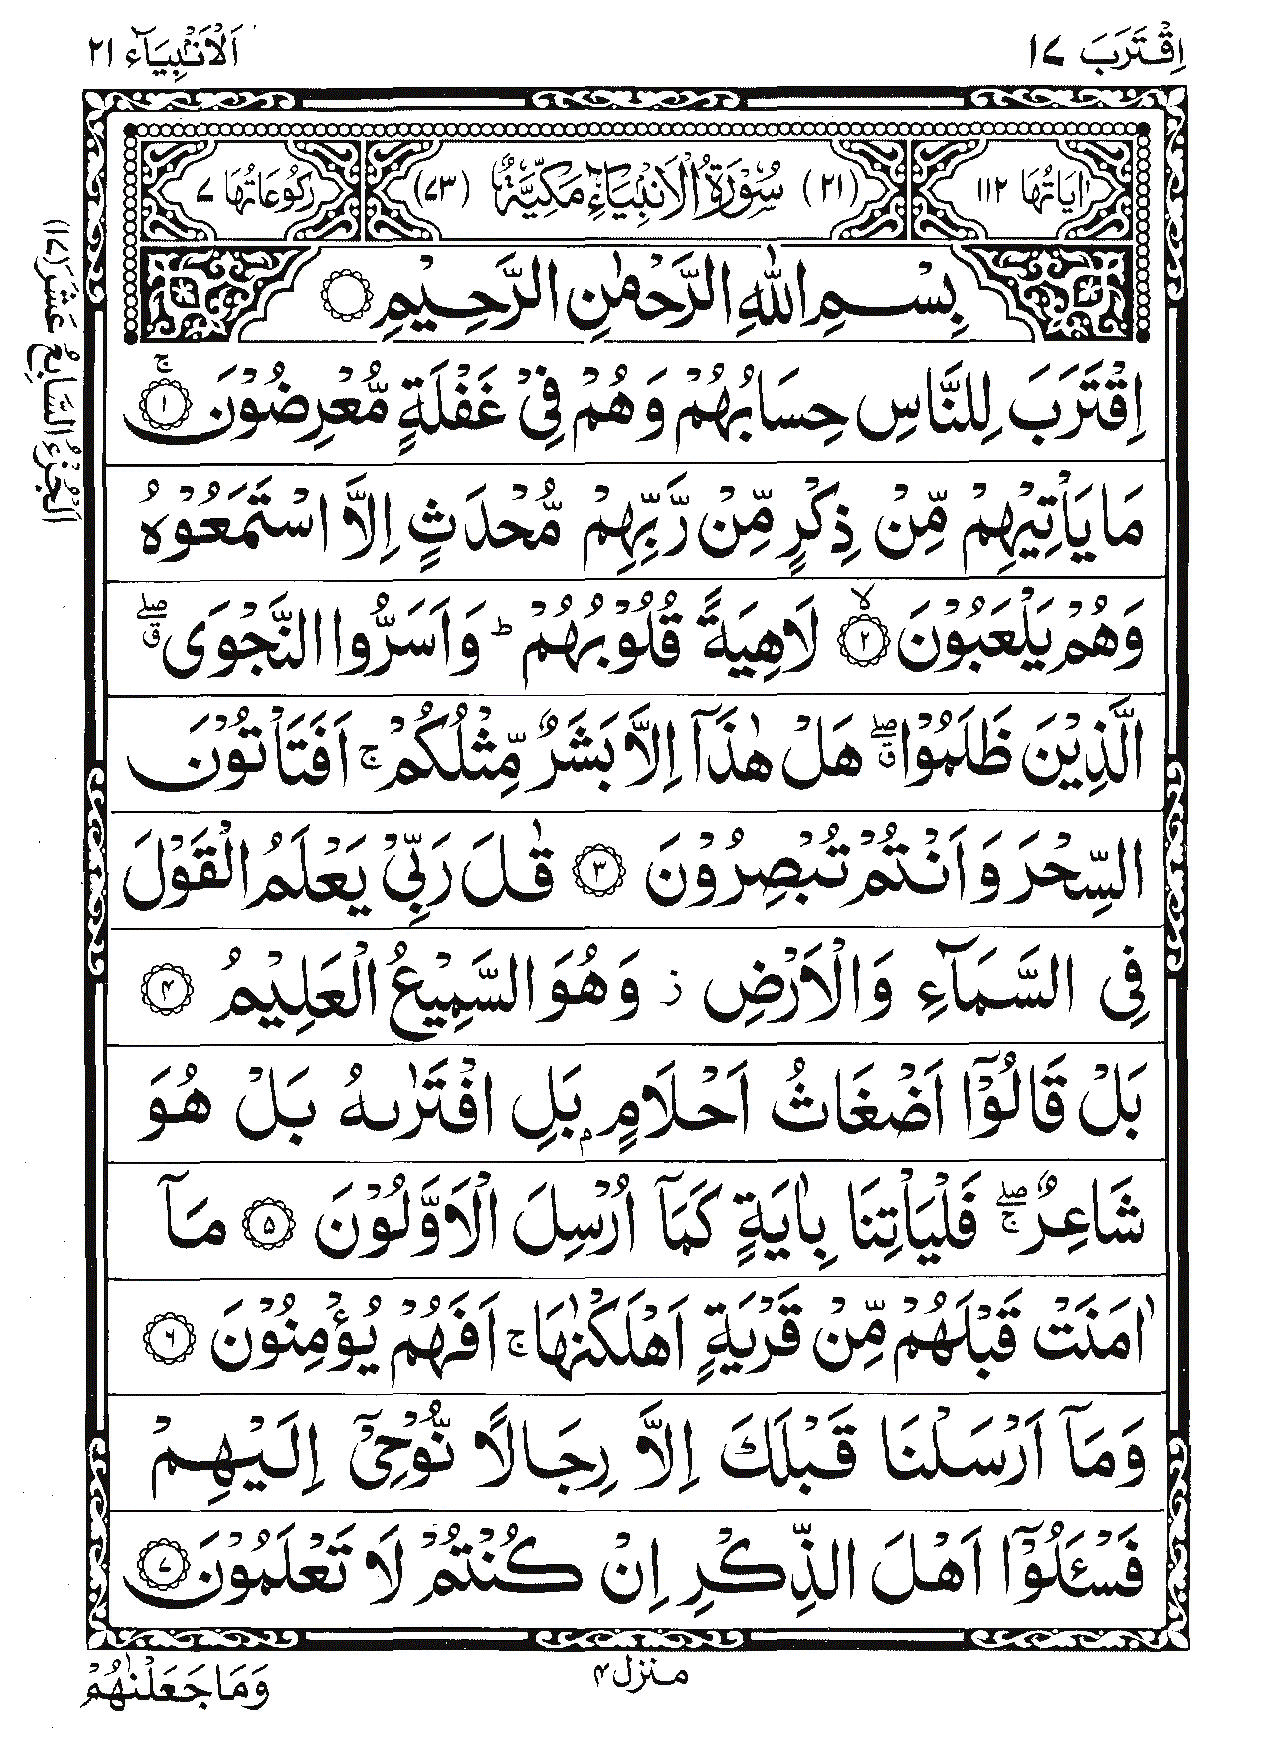 اِقْتَرَبَ ١٧
اَلْاَنْۢبِيَآء ٢١
اٰيَاتُهَا ١١٢
(٢١) سُوْرَةُ الْاَنْۢبِيَآءِ مَكِّيَّةٌ (٧٣)
رُكُوْعَاتُهَا ٧
بِسْمِ اللّٰهِ الرَّحْمٰنِ الرَّحِيْمِ ۝
اِقْتَرَبَ لِلنَّاسِ حِسَابُهُمْ وَهُمْ فِيْ غَفْلَةٍ مُّعْرِضُوْنَ ۚ ۝١
مَا يَاْتِيْهِمْ مِّنْ ذِكْرٍ مِّنْ رَّبِّهِمْ مُّحْدَثٍ اِلَّا اسْتَمَعُوْهُ
وَهُمْ يَلْعَبُوْنَ ۙ ۝٢ لَاهِيَةً قُلُوْبُهُمْ ؕ وَاَسَرُّوا النَّجْوَى ۖ ق
الَّذِيْنَ ظَلَمُوْا ۖ ق هَلْ هٰذَآ اِلَّا بَشَرٌ مِّثْلُكُمْ ۚ اَفَتَاْتُوْنَ
السِّحْرَ وَاَنْتُمْ تُبْصِرُوْنَ ۝٣ قٰلَ رَبِّيْ يَعْلَمُ الْقَوْلَ
فِي السَّمَآءِ وَالْاَرْضِ ز وَهُوَ السَّمِيْعُ الْعَلِيْمُ ۝٤
بَلْ قَالُوْٓا اَضْغَاثُ اَحْلَامٍۭ بَلِ افْتَرٰىهُ بَلْ هُوَ
شَاعِرٌ ۖۚ فَلْيَاْتِنَا بِاٰيَةٍ كَمَآ اُرْسِلَ الْاَوَّلُوْنَ ۝٥ مَآ
اٰمَنَتْ قَبْلَهُمْ مِّنْ قَرْيَةٍ اَهْلَكْنٰهَا ۚ اَفَهُمْ يُؤْمِنُوْنَ ۝٦
وَمَآ اَرْسَلْنَا قَبْلَكَ اِلَّا رِجَالًا نُّوْحِيْٓ اِلَيْهِمْ
فَسْـَٔلُوْٓا اَهْلَ الذِّكْرِ اِنْ كُنْتُمْ لَا تَعْلَمُوْنَ ۝٧
اَلْجُزْءُ السَّابِعُ عَشَرَ (١٧)
منزل ٤
وَمَا جَعَلْنٰهُمْ